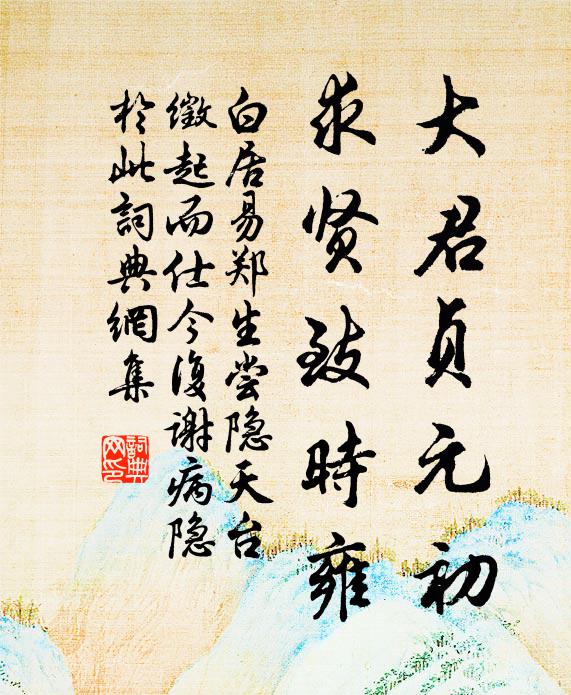 大君贞元初
求贤致時雍
白居易郑生尝隐天台
徵起而仕今復谢病隐
於此詞典網集
詞典
网印